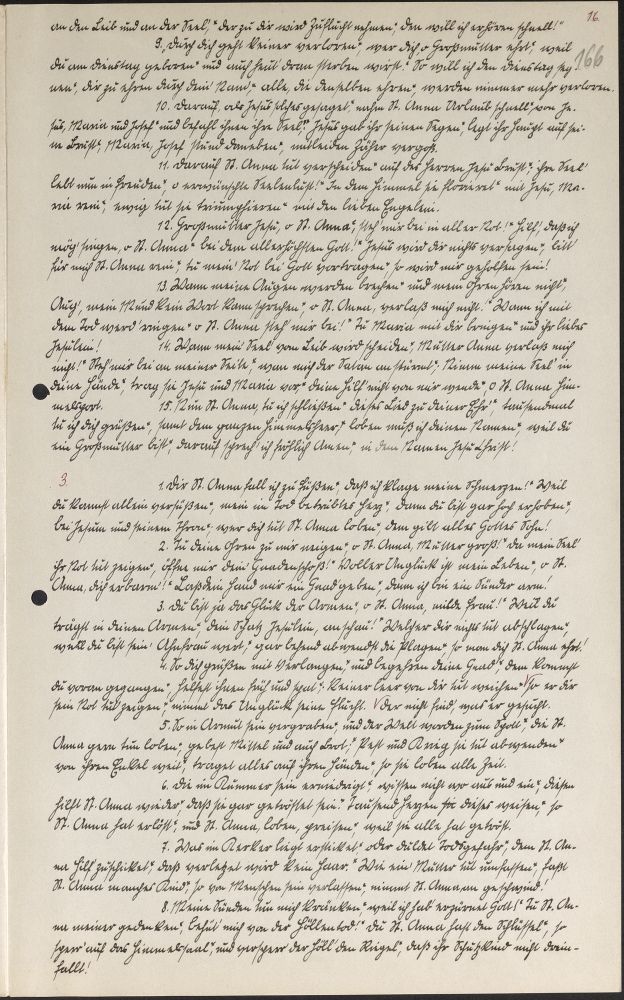 16.
166
an den Leib und an der Seel," der zu dir wird Zuflucht nehmen," den will ich erhören schnell!"
9. "Durch dich geht keiner verloren," wer dich o Großmutter ehrt," weil
du am Dienstag geboren" und auch heut dran sterben wirst." So will ich den Dienstag seg-
nen," dir zu ehren durch dein Hand," alle, die denselben ehren," werden nimmer mehr verloren.
10. Darauf, als Jesus solches gesaget," nahm St. Anna Urlaub schnell," von Je-
sus, Maria und Josef" und befahl ihnen ihre Seel." Jesus gab ihr seinen Segen," legt ihr Haupt auf sei-
ne Brust," Maria, Josef stund daneben," mitleiden Zäher vergoß.
11. Darauf St. Anna tut verscheiden" auf des Herren Jesu Brust"; ihre Seel'
lebt nun in Freuden," o erwünschte Seelenlust!" In dem Himmel sie florieret" mit Jesu, Ma-
ria rein," ewig tut sie triumphieren" mit den lieben Engelein.
12. Großmutter Jesu, o St. Anna," steh' mir bei in aller Not!" Hilf, daß ich
mög' singen, o St. Anna" bei dem allerhöchsten Gott!" Jesus wird dir nichts versagen," bitt'
für mich St. Anna rein," tu mein' Not bei Gott vortragen" so wird mir geholfen sein!
13. Wann meine Augen werden brechen" und mein Ohren hören nicht,"
Auch mein Mund kein Wort kann sprechen," o St. Anna, verlaß mich nicht." Wann ich mit
dem Tod werd' ringen" o St. Anna steh' mir bei!" Tu Maria mit dir bringen" und ihr liebes
Jesulein!
14. Wann mein Seel' vom Leib wird scheiden," Mutter Anna verlaß mich
nicht!" Steh' mir bei an meiner Seite," wann mich der Satan anstürmt," Nimm meine Seel' in
deine Hände," trag sie Jesu und Maria vor" deine Hilf' nicht von mir wende," o St. Anna Him-
melsport.
15. Nun St. Anna, tu ich schließen" dieses Lied zu deiner Ehr'," tausendmal
tu ich dich grüßen," samt dem ganzen Himmelsheer," loben muß ich deinen Namen," weil du
ein Großmutter bist," darauf sprech' ich fröhlich Amen," in dem Namen Jesu Christ!
3.
1. Dir St. Anna fall ich zu Füßen," daß ich klage meine Schmerzen!" Weil
du kannst allein versüßen," mein in Tod betrübtes Herz," dann du bist gar hoch erhoben,"
bei Jesum und seinem Thron," wer dich tut St. Anna loben," dem gilt alles Gottes Sohn!
2. Tu deine Ohren zu mir neigen," o St. Anna, Mutter groß!" da mein Seel'
ihr Not tut zeigen," öffne mir dein Gnadenschoß!" Voller Unglück ist mein Leben," o St.
Anna, dich erbarm'!" Laß dein Hand mir ein Gnad' geben," dann ich bin ein Sünder arm!
3. Du bist ja das Glück der Armen," o St. Anna, milde Frau!" Weil du
trägst in deinen Armen," dein Schatz Jesulein, anschau!" Welcher dir nichts tut abschlagen"
weil du bist sein' Ahnfrau wert," gar behend abwendst die Plagen," so man dich St. Anna ehrt!
4. So dich grüßen mit Verlangen," und begehren deine Gnad"; dem kommst
du voran gegangen," helfest ihnen früh und spat"; keiner leer von dir tut weichen" so er dir
sein Not tut zeigen," nimmt das Unglück seine Flucht. der nicht find', was er gesucht.
5. So in Armut sein vergraben," und der Welt worden zum Spott," die St.
Anna gern tun loben," gebest Mittel und auch Brot," Pest und Krieg sie tut abwenden"
von ihren Enkel weit," traget alles auf ihren Händen," so sie loben alle Zeit.
6. Die im Kummer sein erniedrigt," wissen nicht wo aus und ein," diesen
hilft St. Anna wieder," daß sie gar getröstet sein." Tausend Herzen tut dieses weisen," so
St. Anna hat erlöst," und St. Anna, loben, preisen," weil sie alle hat getröst.
7. Was im Kerker liegt ersticket" oder duldet Todsgefahr," dem St. An-
na Hilf' zuschicket," daß verletzet wird kein Haar." Wie ein Mutter tut umfassen," faßt
St. Anna manches Kind," so von Menschen sein verlassen," nimmt St. Anna an geschwind!
8. Meine Sünden tun mich kränken" weil ich hab' erzürnet Gott!" Tu St. An-
na meiner gedenken," behüt' mich von der Höllentod!" Du St. Anna hast den Schlüssel," so
sperr' auf das Himmelssaal," und versperr der Höll' den Riegel," daß ihr Schutzkind nicht drein-
fallt!